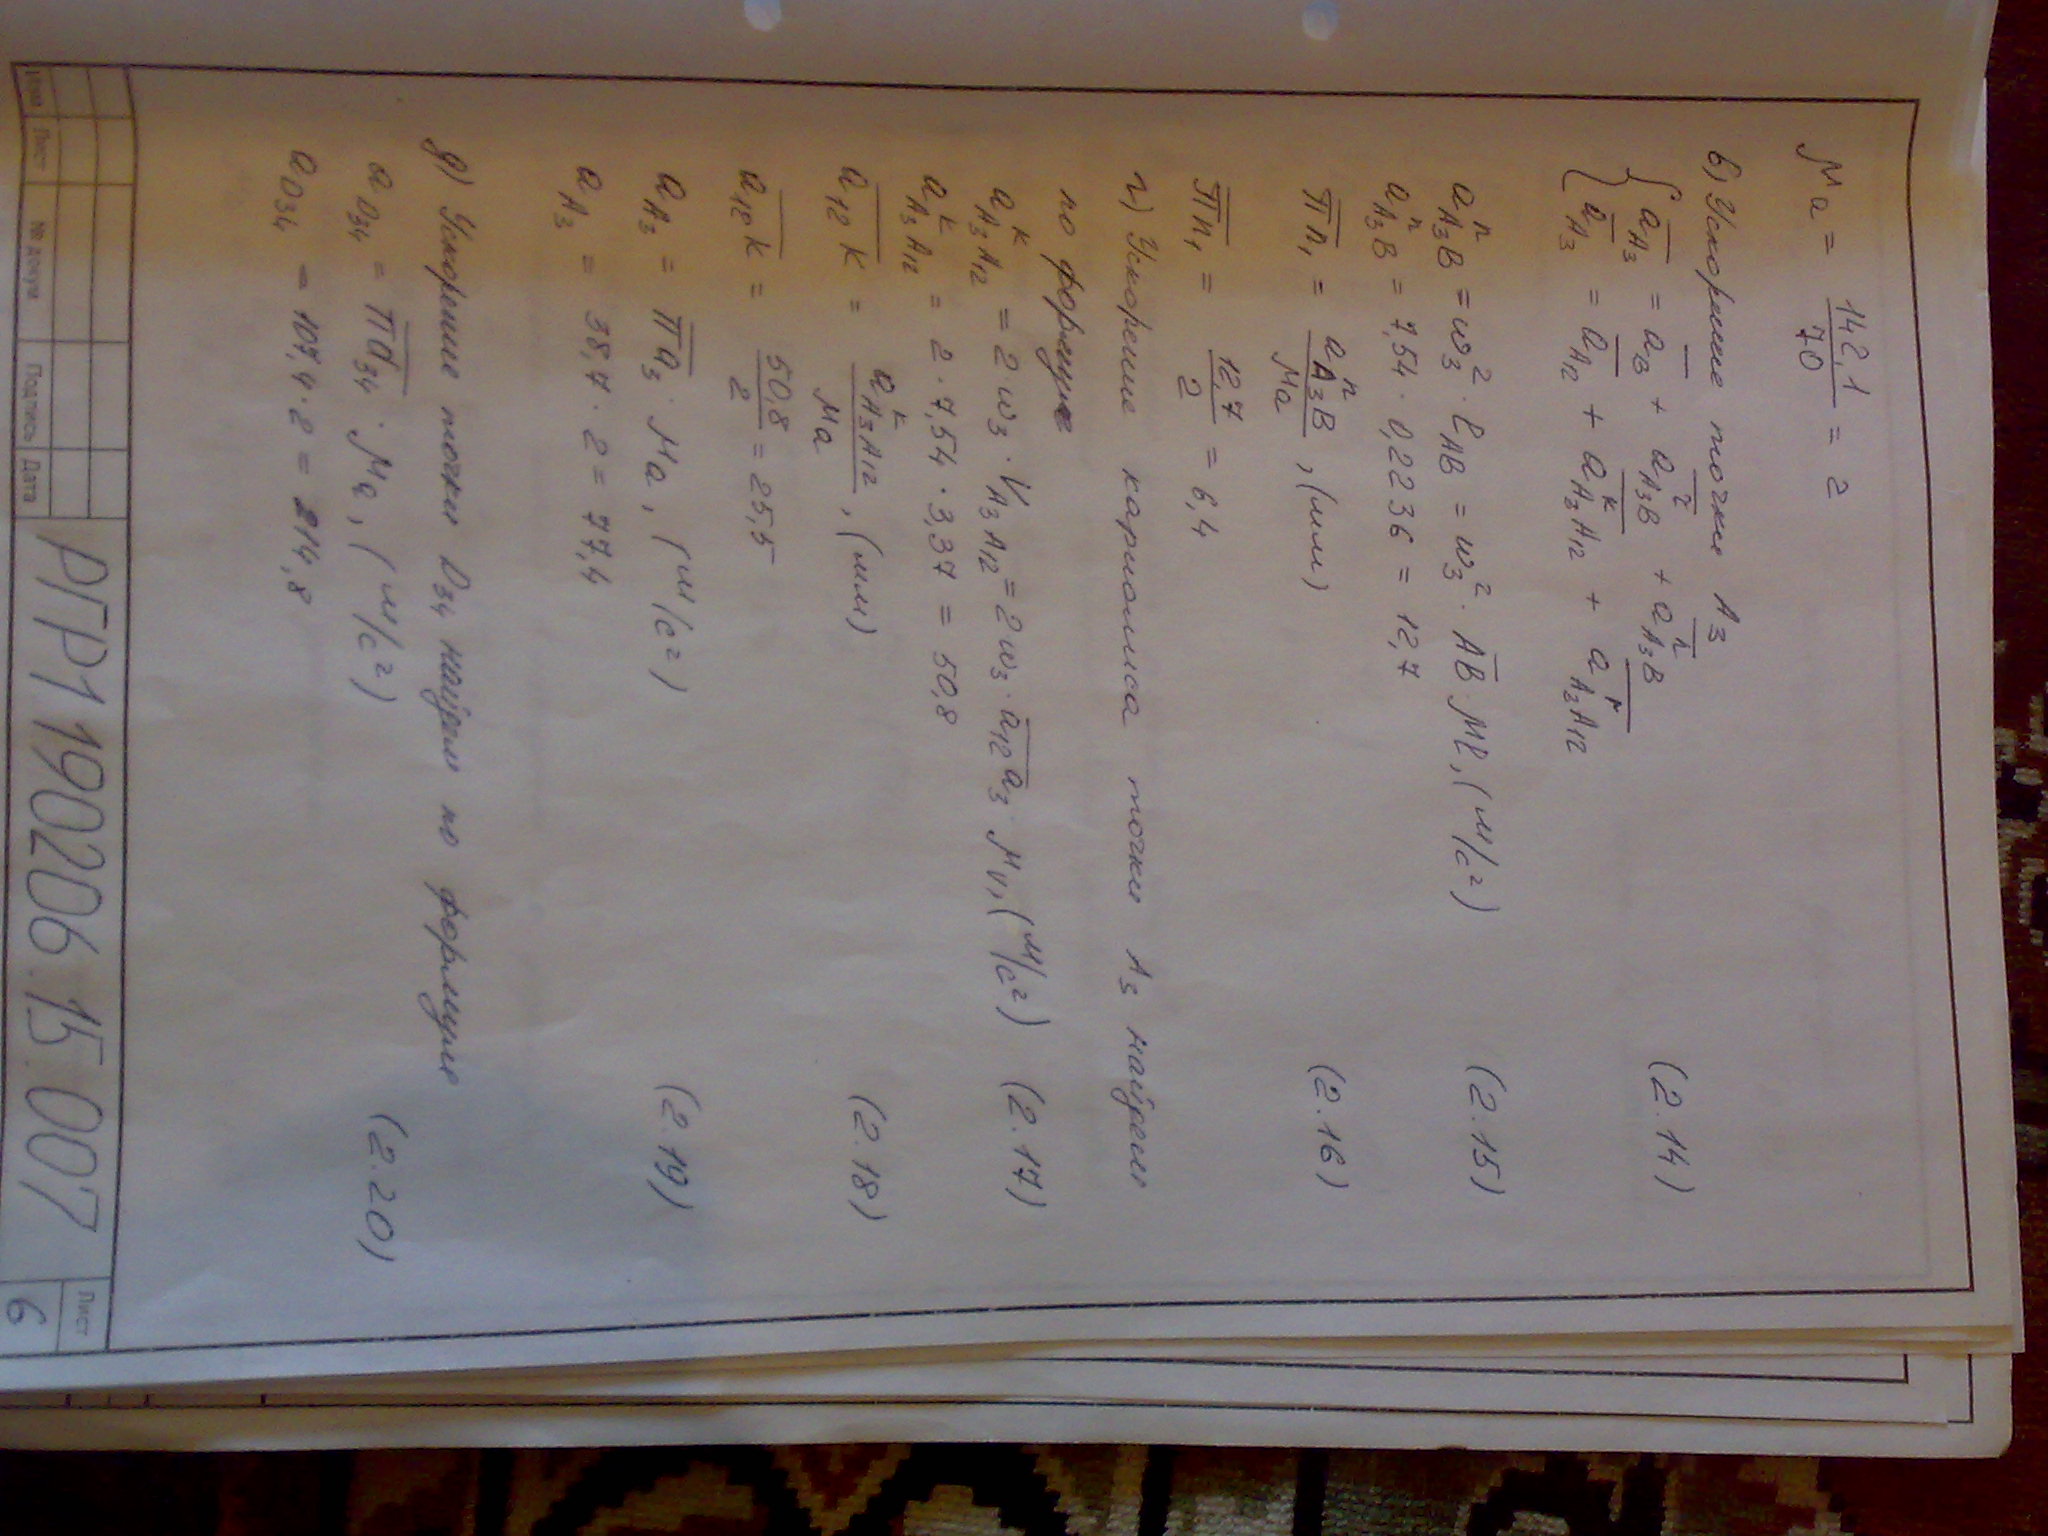 Ma = 142,1/70 = 2
в) Ускорение точки A3
{ a̅A3 = a̅B + a̅^τA3B + a̅^nA3B (2.14)
{ a̅A3 = a̅A12 + a̅^kA3A12 + a̅^rA3A12
a^nA3B = ω3² · ℓAB = ω3² · A̅B̅ · Mℓ, (м/с²) (2.15)
a^nA3B = 7,54 · 0,2236 = 12,7
π̅n̅1 = a^nA3B/Ma, (мм) (2.16)
π̅n̅1 = 12,7/2 = 6,4
г) Ускорение кариолиса точки A3 найдем
по формуле
a^kA3A12 = 2ω3 · VA3A12 = 2ω3 · a̅12a̅3 Mv, (м/с²) (2.17)
a^kA3A12 = 2 · 7,54 · 3,37 = 50,8
a̅12k̅ = a^kA3A12/Ma, (мм) (2.18)
a̅12k̅ = 50,8/2 = 25,5
aA3 = π̅a̅3 · Ma, (м/с²) (2.19)
aA3 = 38,7 · 2 = 77,4
д) Ускорение точки D34 найдем по формуле
aD34 = π̅d̅34 · Ma, (м/с²) (2.20)
aD34 = 107,4 · 2 = 214,8
Изм Лист № докум. Подпись Дата
РГР1 190206.15.007
Лист
6